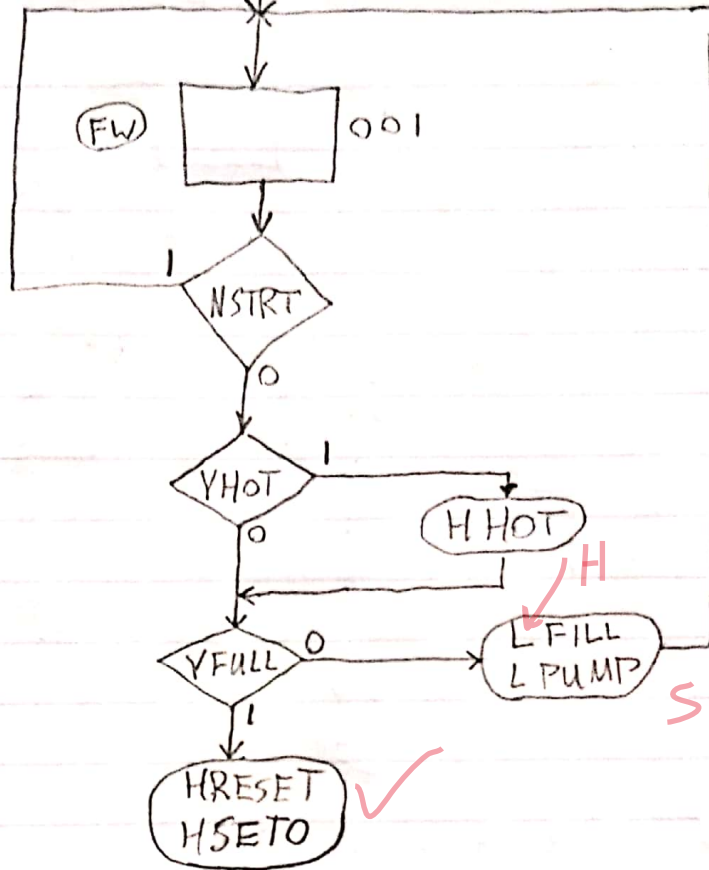 FW
001
1
NSTRT
0
1
YHOT
0
H HOT
H
YFULL
0
L FILL
L PUMP
S
1
HRESET
HSETO